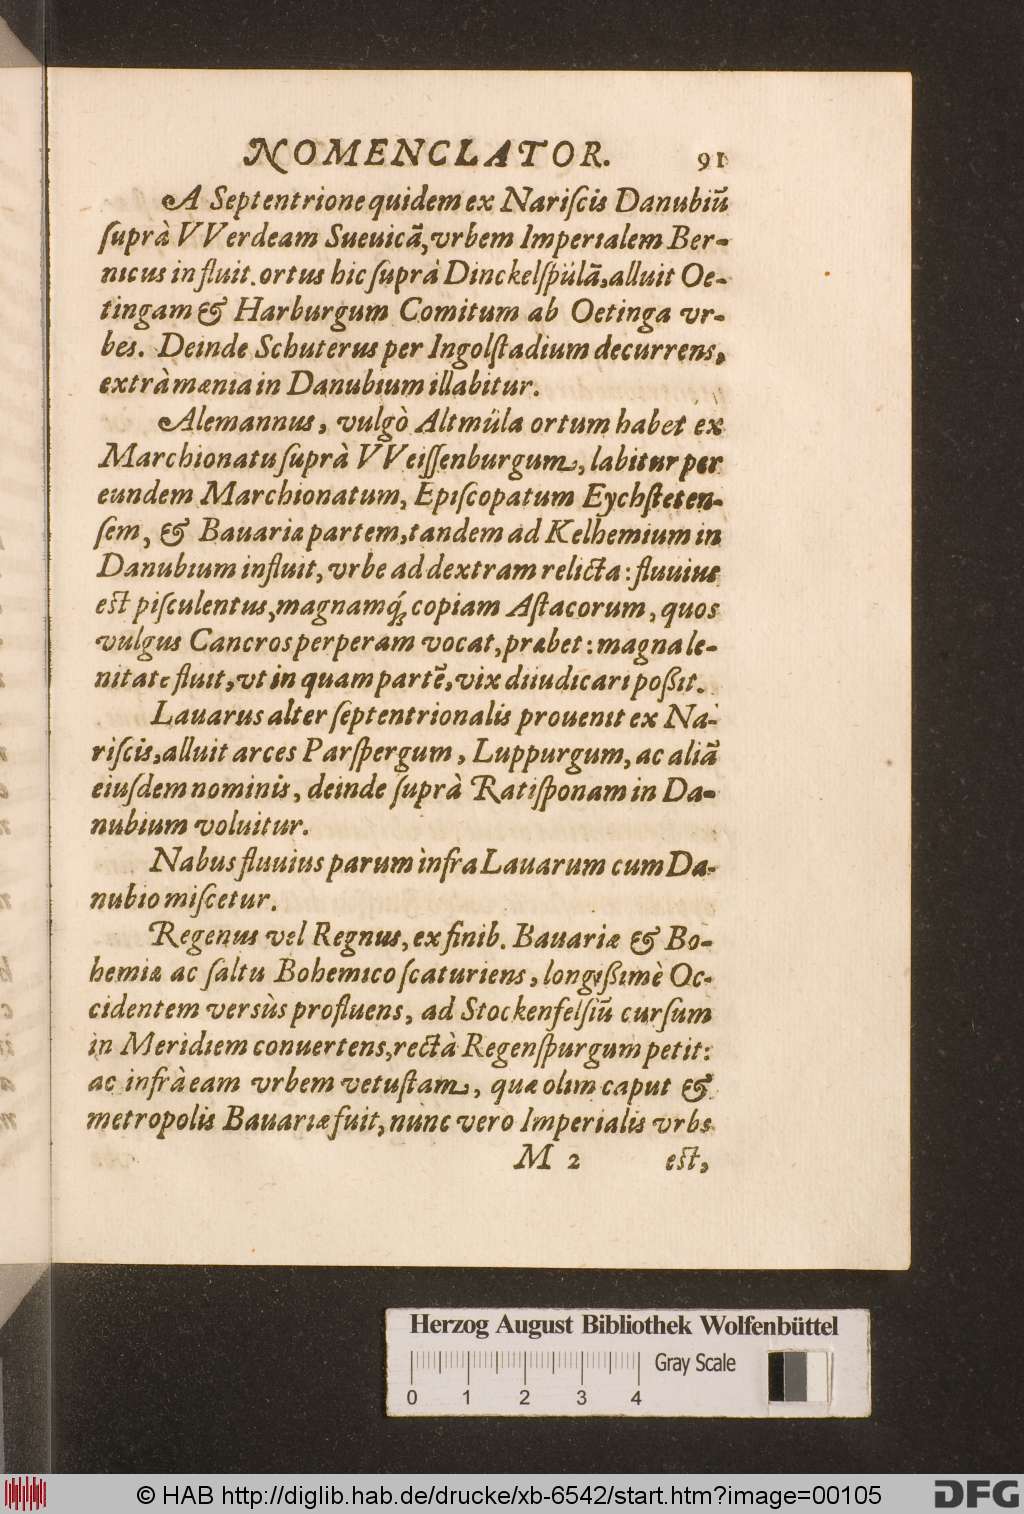 NOMENCLATOR. 91
A Septentrione quidem ex Nariſcis Danubiũ
ſuprà VVerdeam Sueuicã, vrbem Imperialem Ber-
nicus influit. ortus hic ſuprà Dinckelſpülã, alluit Oe-
tingam & Harburgum Comitum ab Oetinga vr-
bes. Deinde Schuterus per Ingolſtadium decurrens,
extrà mænia in Danubium illabitur.
Alemannus, vulgò Altmüla ortum habet ex
Marchionatu ſuprà VVeiſſenburgum, labitur per
eundem Marchionatum, Epiſcopatum Eychſteten-
ſem, & Bauariæ partem, tandem ad Kelhemium in
Danubium influit, vrbe ad dextram relicta: fluuius
eſt piſculentus, magnamq́; copiam Aſtacorum, quos
vulgus Cancros perperam vocat, præbet: magna le-
nitate fluit, vt in quam partẽ, vix diiudicari poßit.
Lauarus alter ſeptentrionalis prouenit ex Na-
riſcis, alluit arces Parſpergum, Luppurgum, ac aliã
eiuſdem nominis, deinde ſuprà Ratiſponam in Da-
nubium voluitur.
Nabus fluuius parum ìnfra Lauarum cum Da-
nubio miſcetur.
Regenus vel Regnus, ex finib. Bauariæ & Bo-
hemiæ ac ſaltu Bohemico ſcaturiens, longißimè Oc-
cidentem versùs profluens, ad Stockenfelſiũ curſum
in Meridiem conuertens, rectà Regenſpurgum petit:
ac infrà eam vrbem vetuſtam, quæ olim caput &
metropolis Bauariæ fuit, nunc vero Imperialis vrbs
M 2 eſt,
Herzog August Bibliothek Wolfenbüttel
Gray Scale
0 1 2 3 4
© HAB http://diglib.hab.de/drucke/xb-6542/start.htm?image=00105 DFG